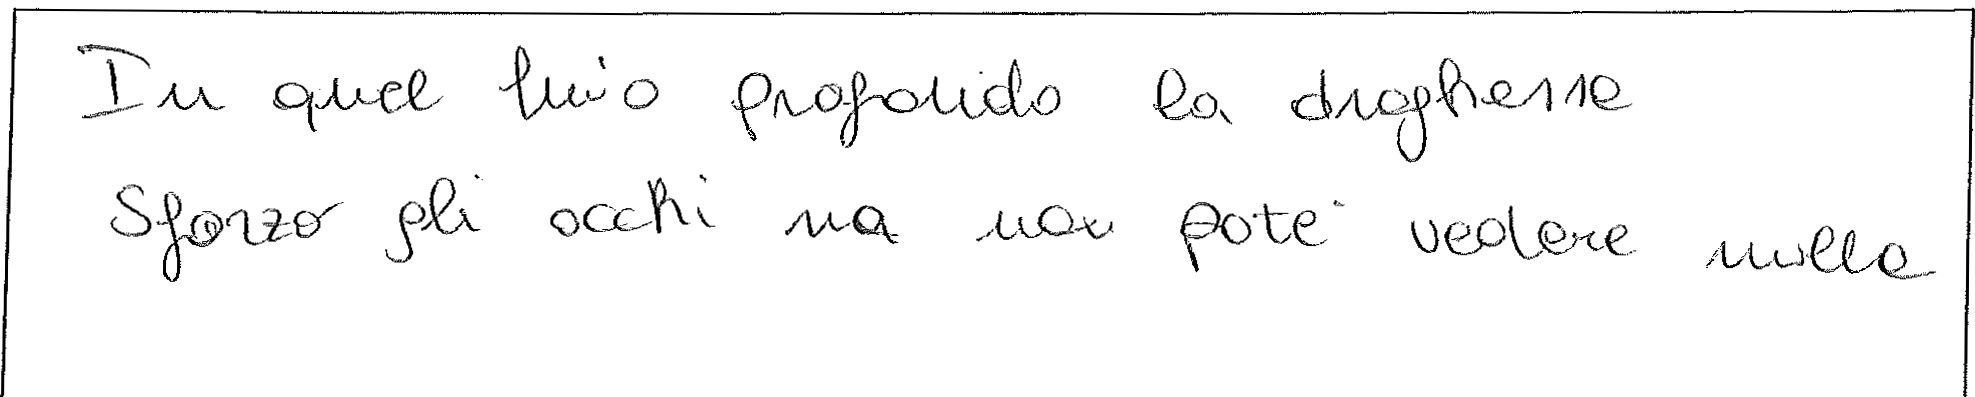 In quel buio profondo la draghessa
Sforzo gli occhi ma non poté vedere nulla